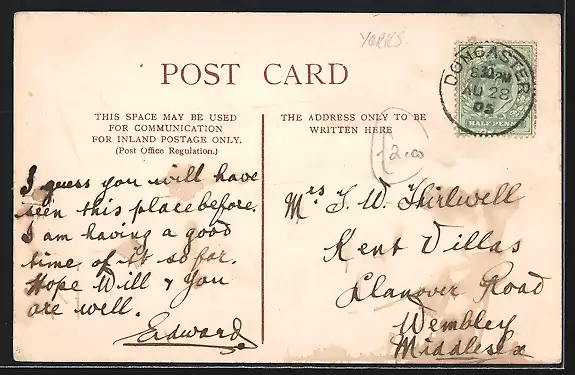 YORKS.
POST CARD
DONCASTER
8.30 PM
AU 28
05
HALFPENNY
THIS SPACE MAY BE USED
FOR COMMUNICATION
FOR INLAND POSTAGE ONLY.
(Post Office Regulation.)
THE ADDRESS ONLY TO BE
WRITTEN HERE
£2.00
I guess you will have
seen this place before.
I am having a good
time of it so far.
Hope Will & you
are well.
Edward
Mrs T. W. Thirlwell
Kent Villas
Llanover Road
Wembley
Middlesex